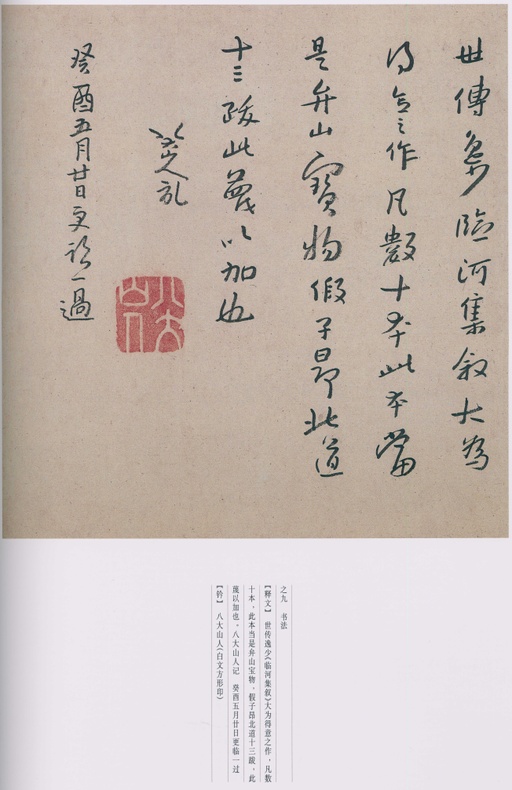 世傳逸少臨河集叙大為
得意之作凡數十本此本當
是弁山寶物假子昂北道
十三跋此蔑以加也
八大山人記
癸酉五月廿日更臨一過
八大山人
之九 书法
【释文】 世传逸少《临河集叙》大为得意之作,凡数
十本,此本当是弁山宝物、假子昂北道十三跋,此
蔑以加也。八大山人记 癸酉五月廿日更临一过
【钤】 八大山人(白文方形印)